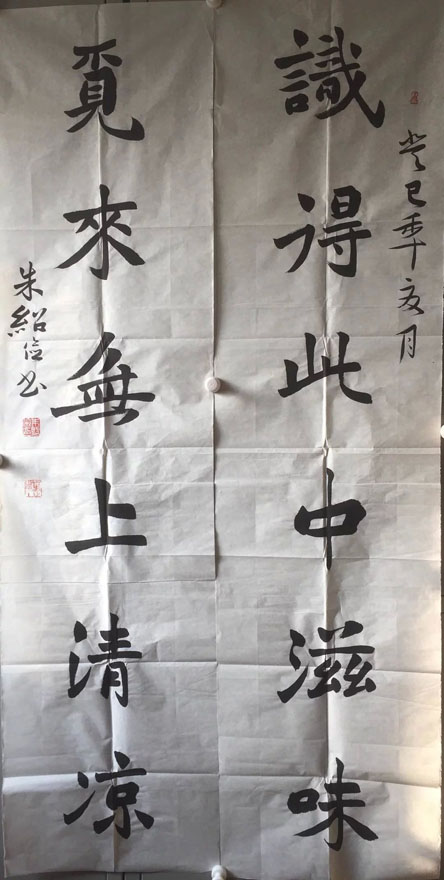 癸巳年夏月
識得此中滋味
覓來無上清凉
朱紹俭书